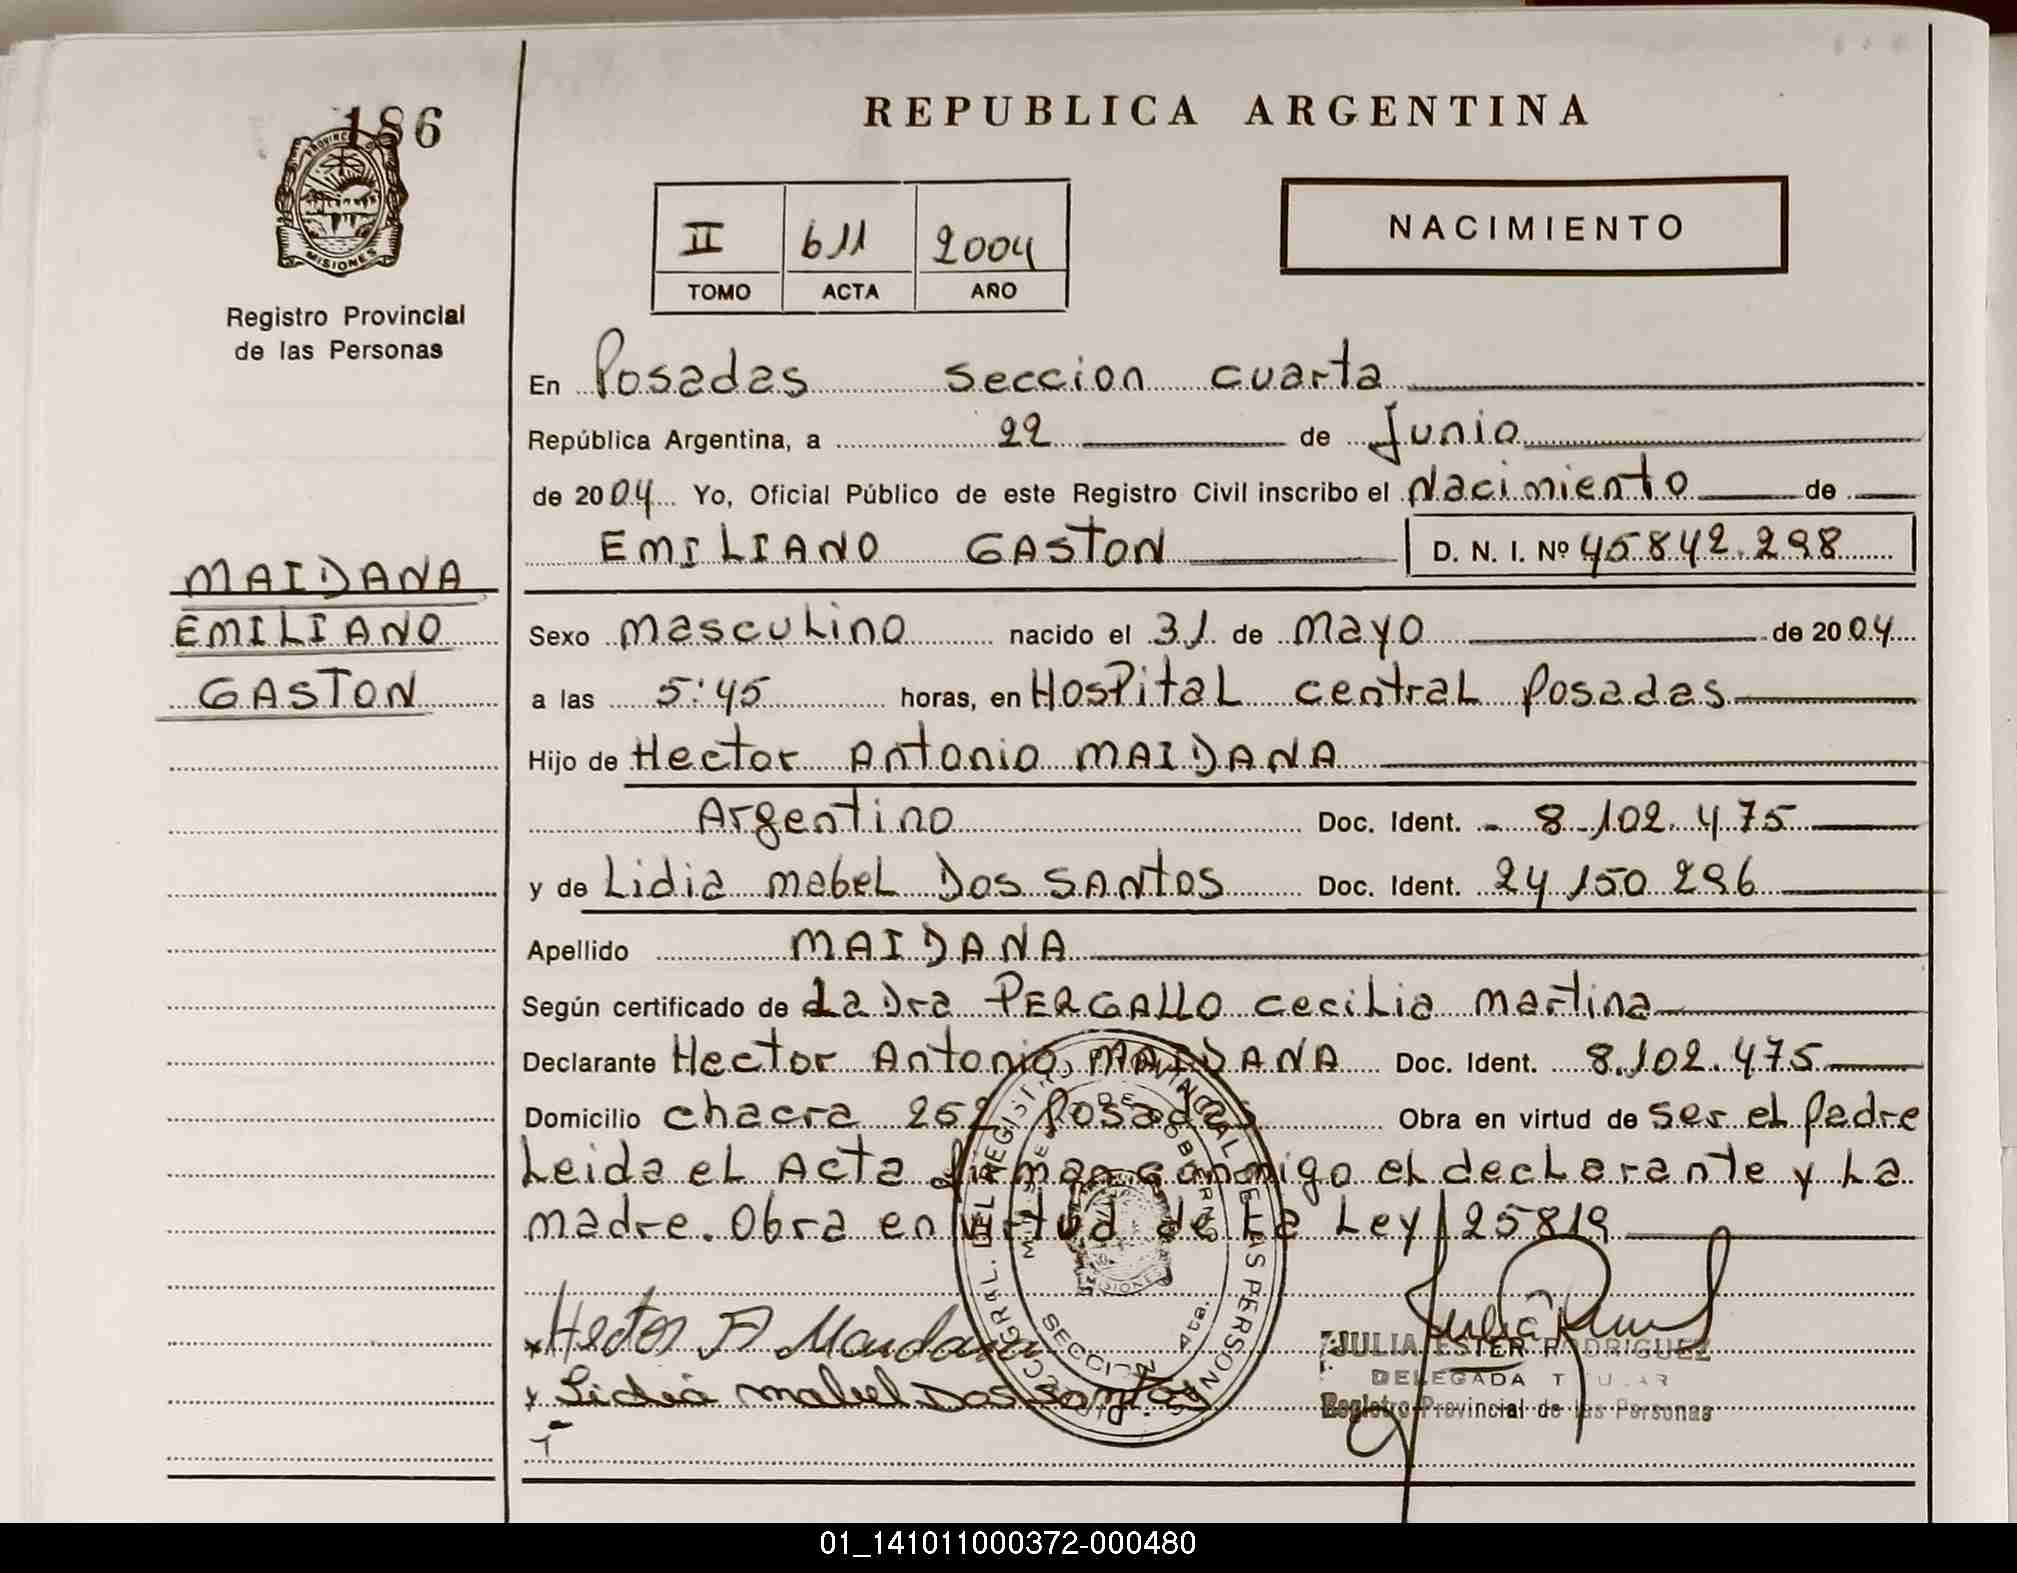 186
PROVINCIA DE
MISIONES
Registro Provincial
de las Personas
MAIDANA
EMILIANO
GASTON
REPUBLICA ARGENTINA
II 611 2004
TOMO ACTA AÑO
NACIMIENTO
En Posadas seccion cuarta
República Argentina, a 22 de Junio
de 2004 Yo, Oficial Público de este Registro Civil inscribo el Nacimiento de
EMILIANO GASTON D. N. I. Nº 45842.298
Sexo masculino nacido el 31 de mayo de 2004
a las 5:45 horas, en HospitaL centraL Posadas
Hijo de Hector Antonio MAIDANA
Argentino Doc. Ident. 8.102.475
y de Lidia mabeL Dos SANtos Doc. Ident. 24 150 296
Apellido MAIDANA
Según certificado de La Dra PERGALLO ceciLia martina
Declarante Hector Antonio MAIDANA Doc. Ident. 8.102.475
Domicilio chacra 252 Posadas Obra en virtud de ser eL Padre
Leida eL Acta firman conmigo eL decLarante y La
madre. Obra en virtud de La Ley 25819
Hector A Maidana
Lidia mabel Dos santos
JULIA ESTER RODRIGUEZ
DELEGADA TITULAR
Registro Provincial de las Personas
DIRECC. GRAL. DEL REGISTRO PROVINCIAL DE LAS PERSONAS
DE GOBIERNO
SECCION 4ta.
MISIONES
01_141011000372-000480